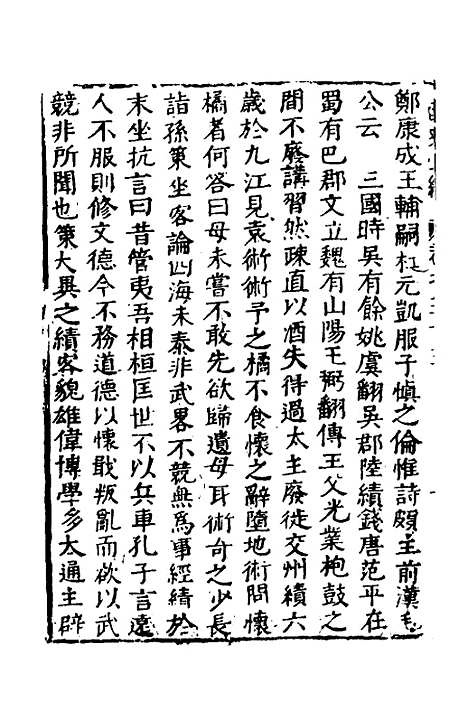 鄭康成王輔嗣杜元凱服子慎之倫惟詩頗主前漢毛
公云　三國時吳有餘姚虞翻吳郡陸績錢唐范平在
蜀有巴郡文立魏有山陽王弼翻傳王父光業枹鼓之
間不廢講習然疎直以酒失待過太主廢徙交州績六
歲於九江見袁術術予之橘不食懷之辭墮地術問懷
橘者何答曰母未嘗不敢先欲歸遺母耳術奇之少長
詣孫策坐客論四海未泰非武畧不競無爲事經績於
末坐抗言曰昔管夷吾相桓匡世不以兵車孔子言遠
人不服則修文德今不務道德以懷戢叛亂而欲以武
競非所聞也策大異之績客貌雄偉博學多太通主辟